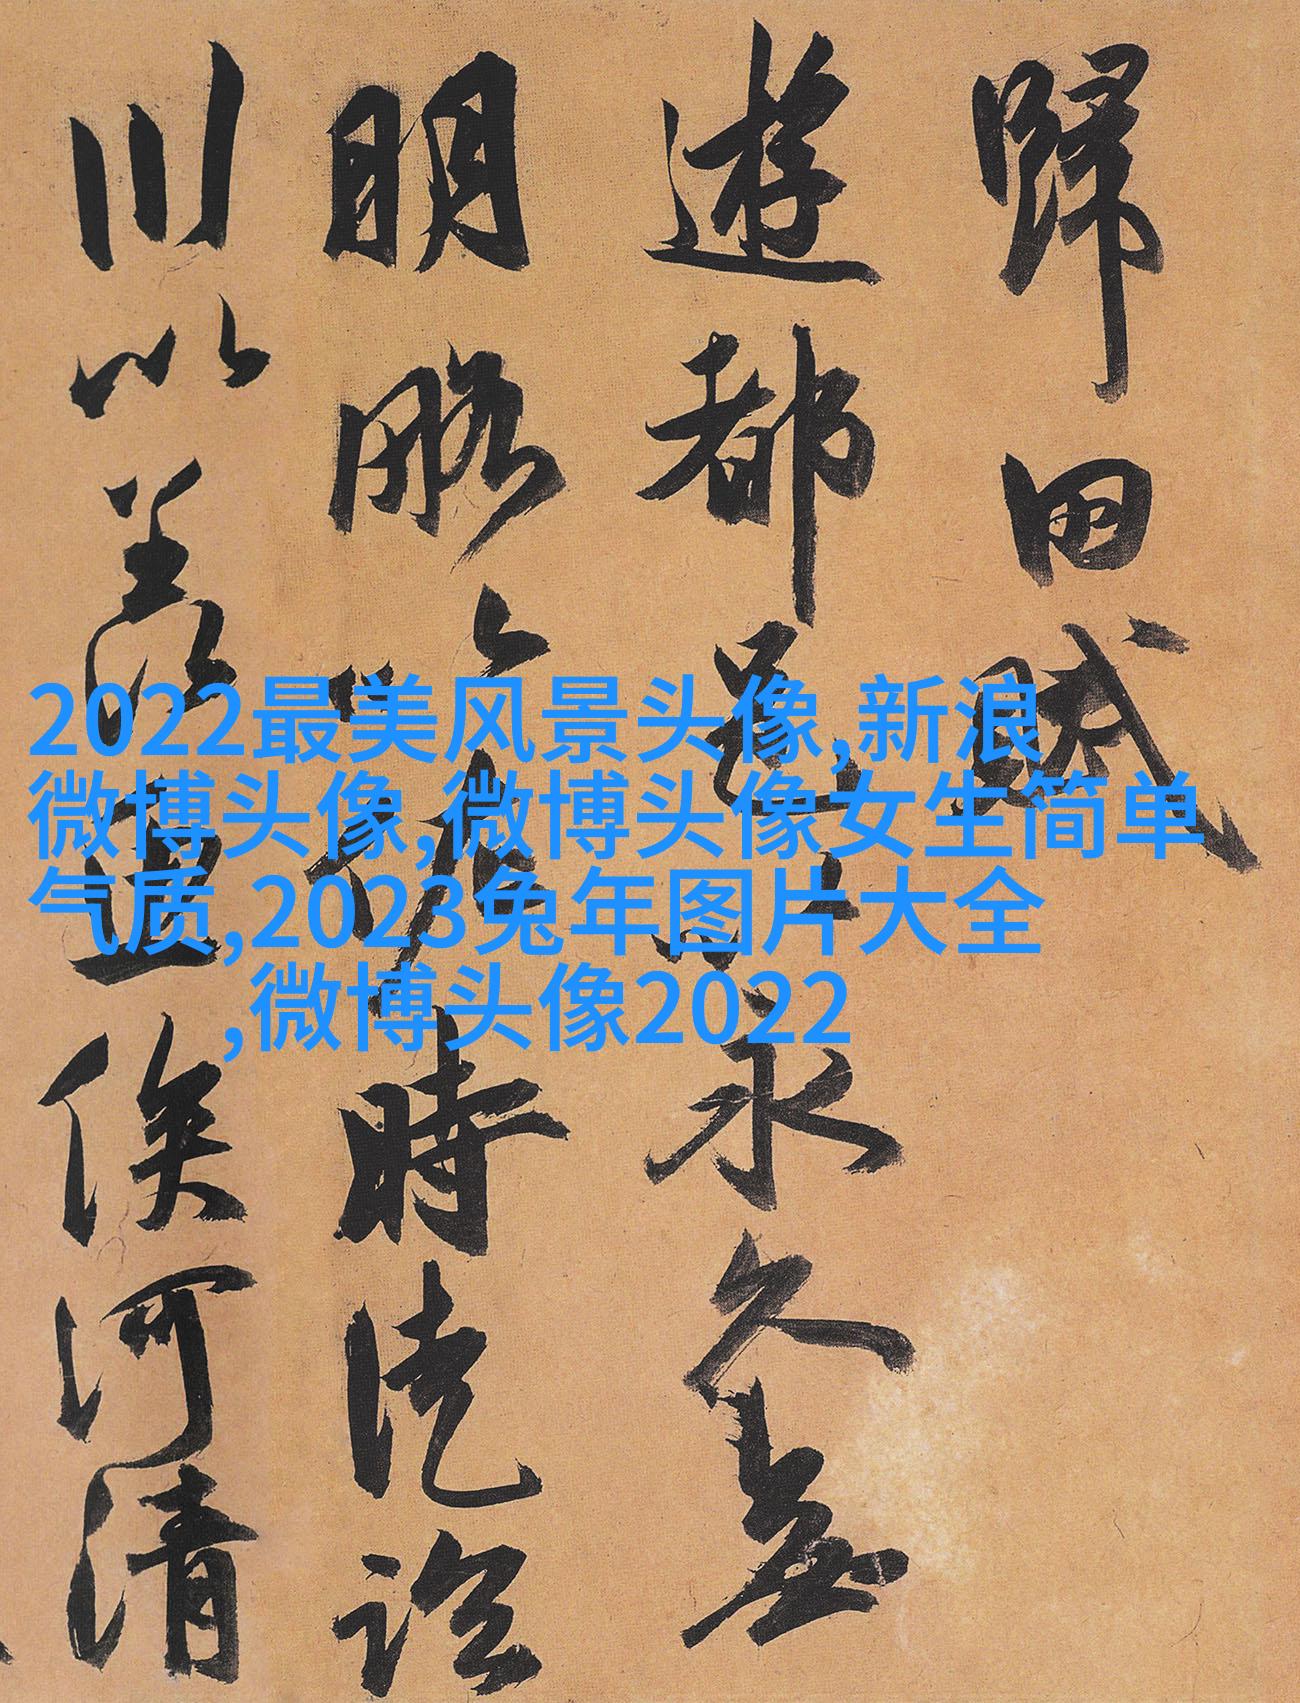 歸田賦
遊都邑以永久無
明略以佐時徒臨
川以羨魚俟河清
2022最美风景头像,新浪
微博头像,微博头像女生简单
气质,2023兔年图片大全
,微博头像2022